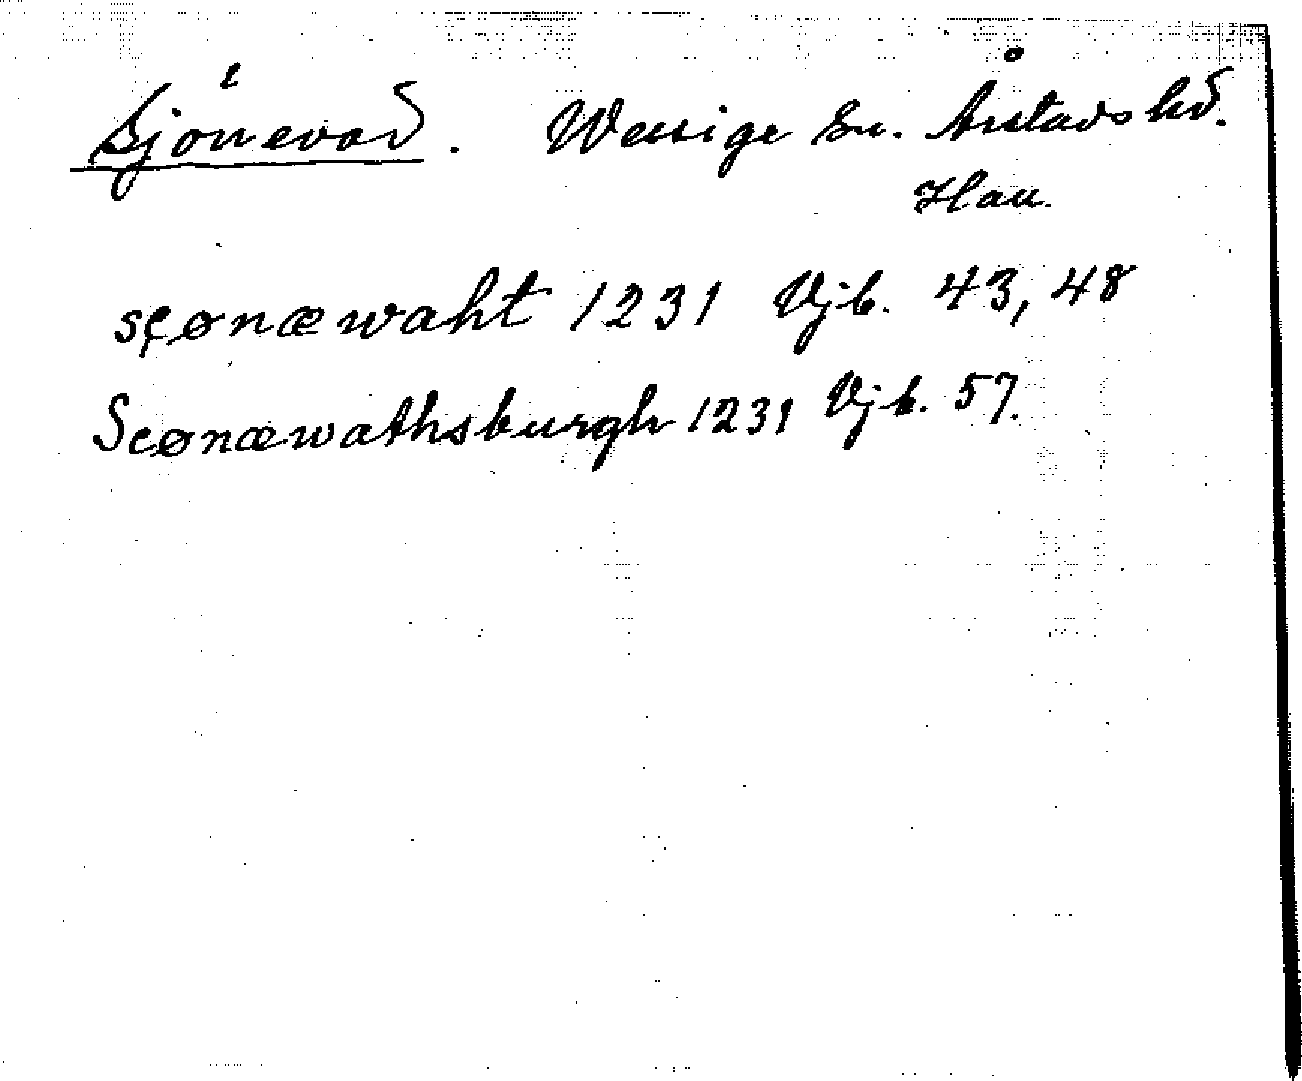 Sjönevad. Wessige Sn. Årstads hd.
Hall.
sçønæwaht 1231 Vjb. 43, 48
Scønæwathsburgh 1231 Vjb. 57.